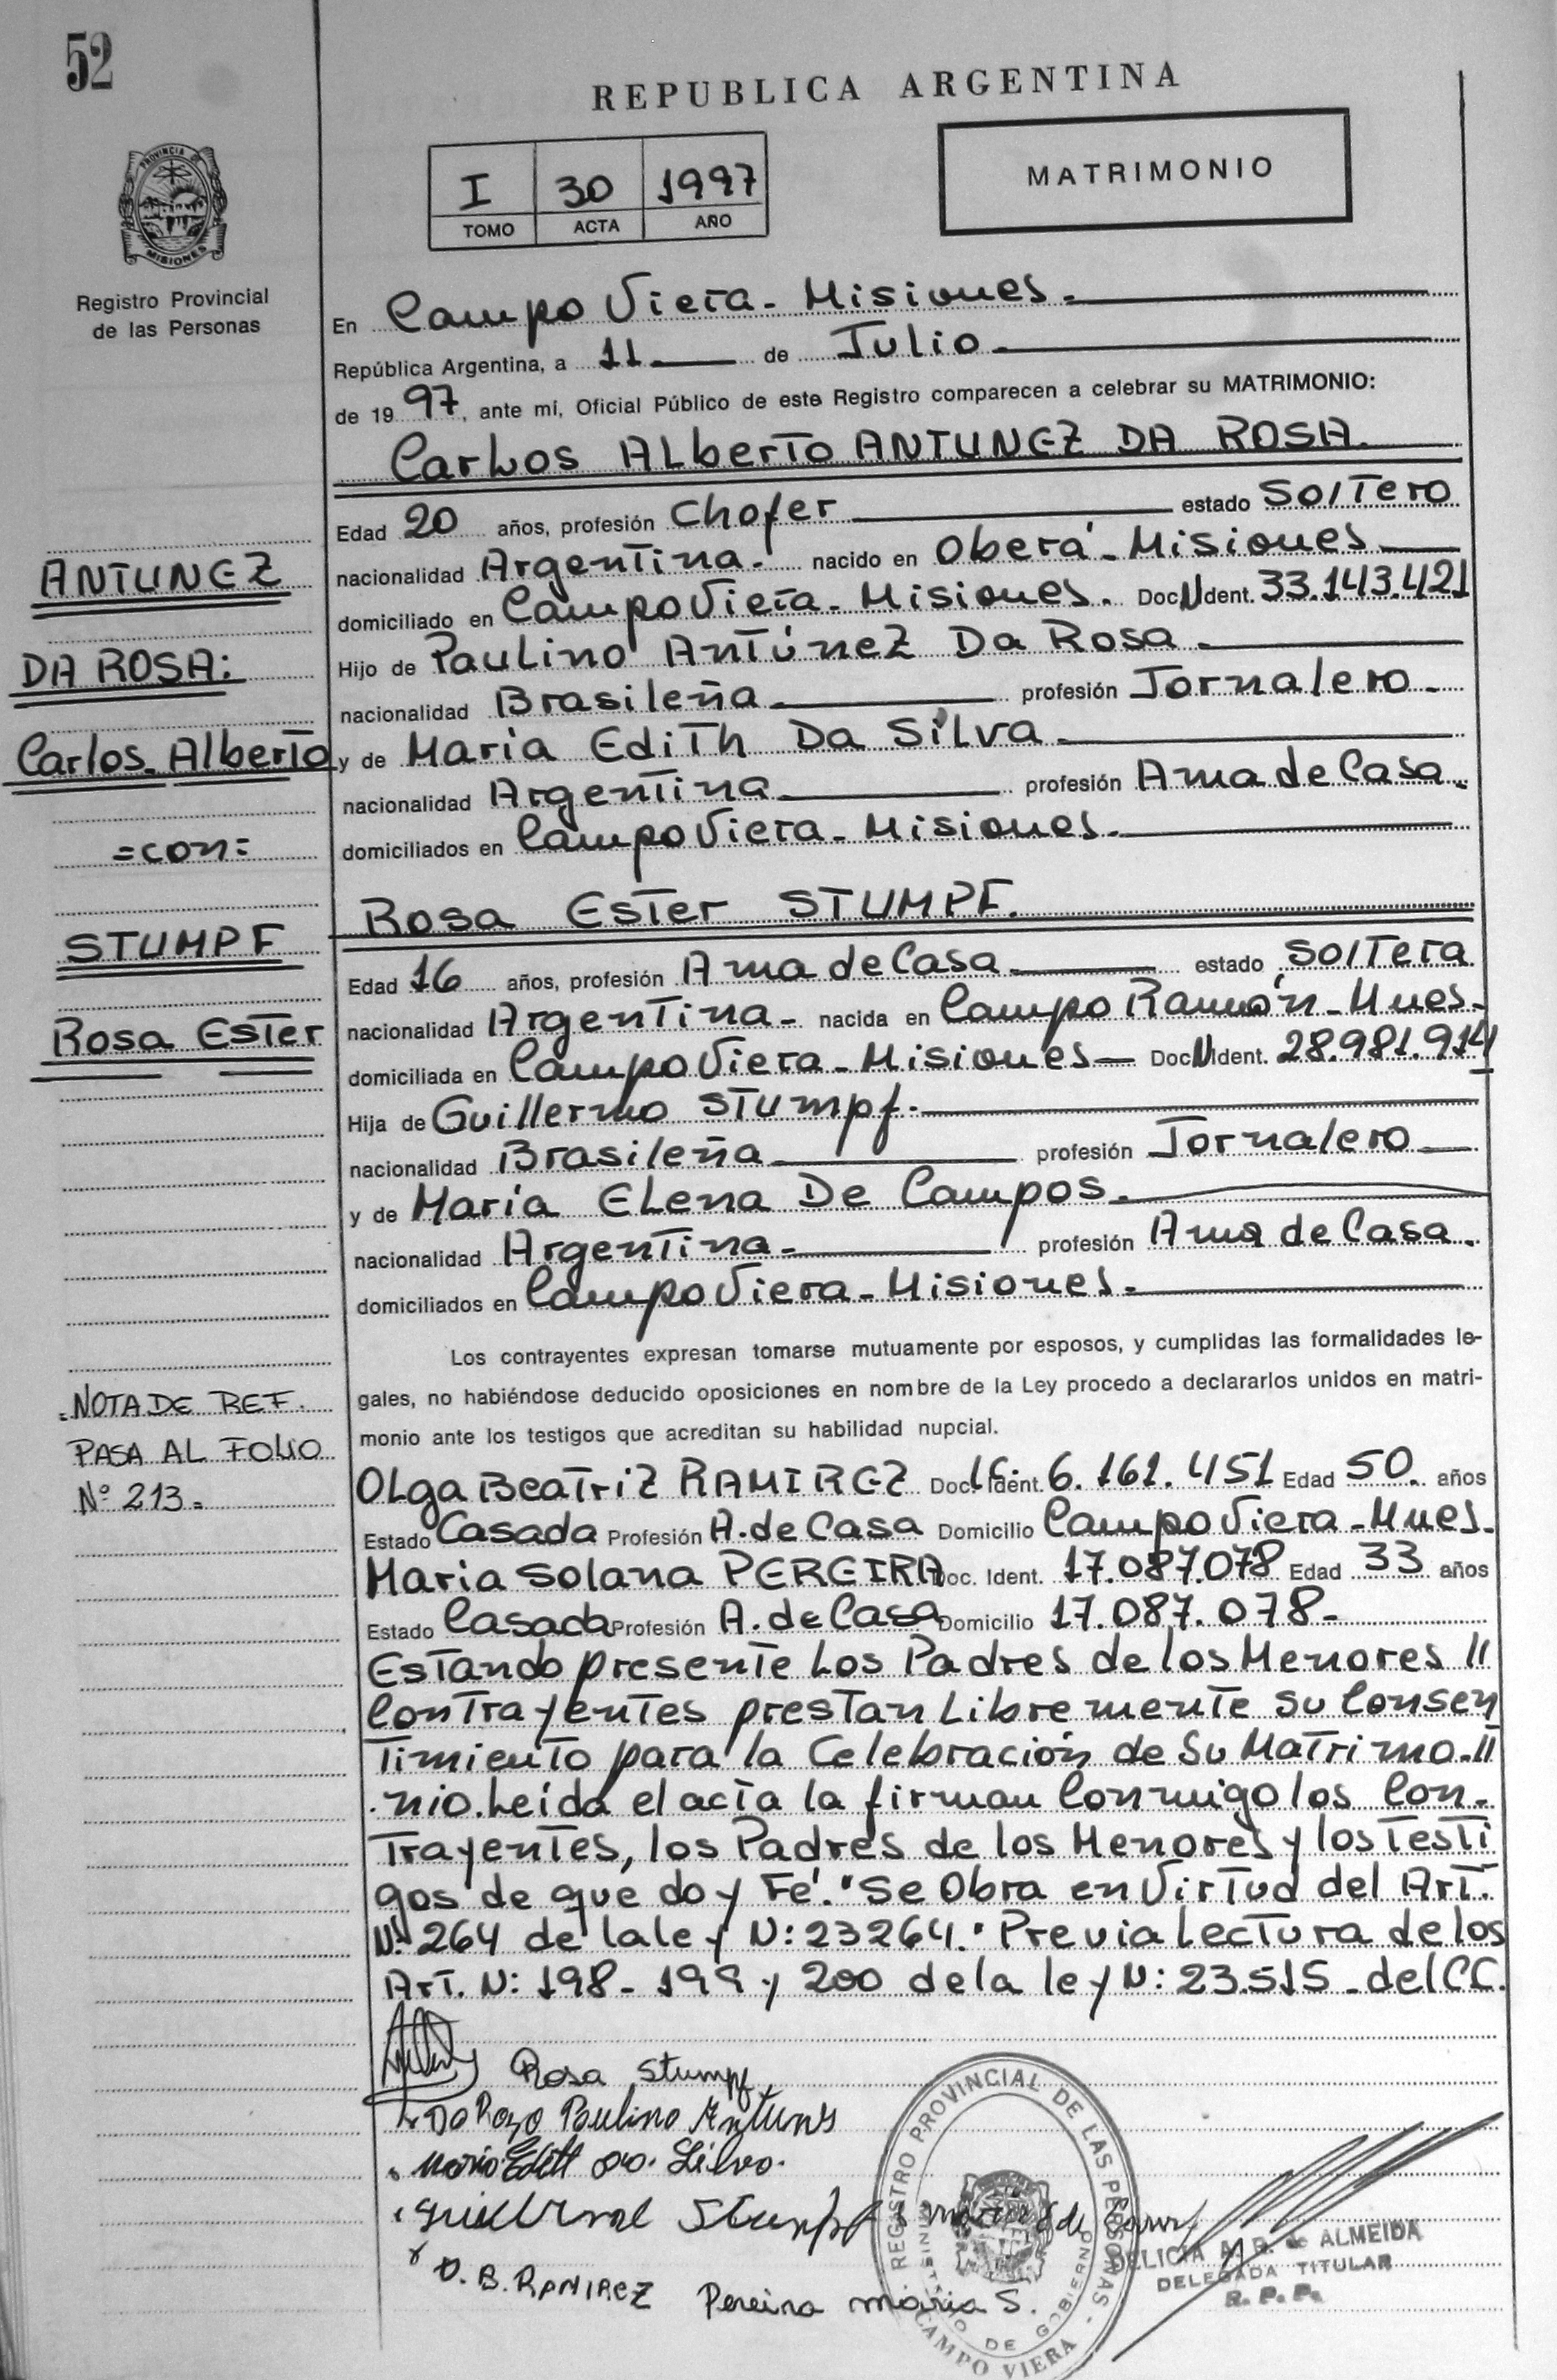 52
REPUBLICA ARGENTINA
PROVINCIA DE
MISIONES
Registro Provincial
de las Personas
I 30 1997
TOMO ACTA AÑO
MATRIMONIO
En Campo Viera - Misiones.
República Argentina, a 11 de Julio.
de 1997, ante mi, Oficial Público de este Registro comparecen a celebrar su MATRIMONIO:
Carlos Alberto ANTUNEZ DA ROSA.
Edad 20 años, profesión Chofer estado Soltero
nacionalidad Argentina. nacido en Oberá - Misiones
domiciliado en Campo Viera - Misiones. Doc. N Ident. 33.143.421
Hijo de Paulino Antúnez Da Rosa.
nacionalidad Brasileña profesión Jornalero.
y de Maria Edith Da Silva.
nacionalidad Argentina profesión Ama de Casa.
domiciliados en Campo Viera - Misiones.
Rosa Ester STUMPF.
Edad 16 años, profesión Ama de Casa estado Soltera
nacionalidad Argentina. nacida en Campo Ramón - Mnes.
domiciliada en Campo Viera - Misiones Doc. N Ident. 28.981.914
Hija de Guillermo Stumpf.
nacionalidad Brasileña profesión Jornalero
y de Maria Elena De Campos.
nacionalidad Argentina. profesión Ama de Casa.
domiciliados en Campo Viera - Misiones.
Los contrayentes expresan tomarse mutuamente por esposos, y cumplidas las formalidades le-
gales, no habiéndose deducido oposiciones en nombre de la Ley procedo a declararlos unidos en matri-
monio ante los testigos que acreditan su habilidad nupcial.
Olga Beatriz RAMIREZ Doc. Ident. 6.161.451 Edad 50. años
Estado Casada Profesión A. de Casa Domicilio Campo Viera - Mnes.
Maria Solana PEREIRA Doc. Ident. 17.087.078 Edad 33 años
Estado Casada Profesión A. de Casa Domicilio 17.087.078-
Estando presente los Padres de los Menores //
Contrayentes prestan libremente su Consen
timiento para la Celebración de su Matrimo-//
nio. Leída el acta la firman Conmigo los Con-
trayentes, los Padres de los Menores y los Testi
gos de que doy Fé. "Se Obra en Virtud del Art.
N: 264 de la ley N: 23264." Previa Lectura de los
Art. N: 198 - 199 y 200 de la ley N: 23.515 - del C.C.
ANTUNEZ
DA ROSA:
Carlos Alberto
=con=
STUMPF
Rosa Ester
NOTA DE REF.
PASA AL FOLIO
Nº 213.
Rosa Stumpf
Da Rozo Paulino Antunes
Maria Edith da Silva.
Stumpf
O. B. RAMIREZ Pereira maria S.
REGISTRO PROVINCIAL DE LAS PERSONAS -
MINISTERIO DE GOBIERNO
CAMPO VIERA
DELICIA de ALMEIDA
DELEGADA TITULAR
R. P. P.